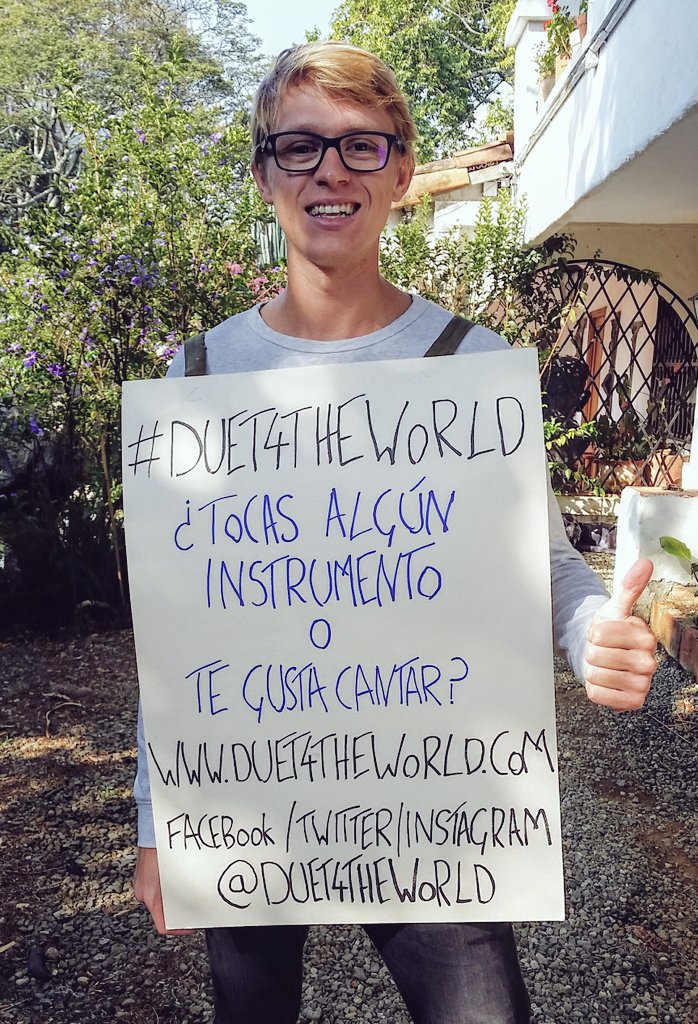 #DUET4THEWORLD
¿TOCAS ALGÚN
INSTRUMENTO
O
TE GUSTA CANTAR?
WWW.DUET4THEWORLD.COM
FACEBOOK/TWITTER/INSTAGRAM
@DUET4THEWORLD